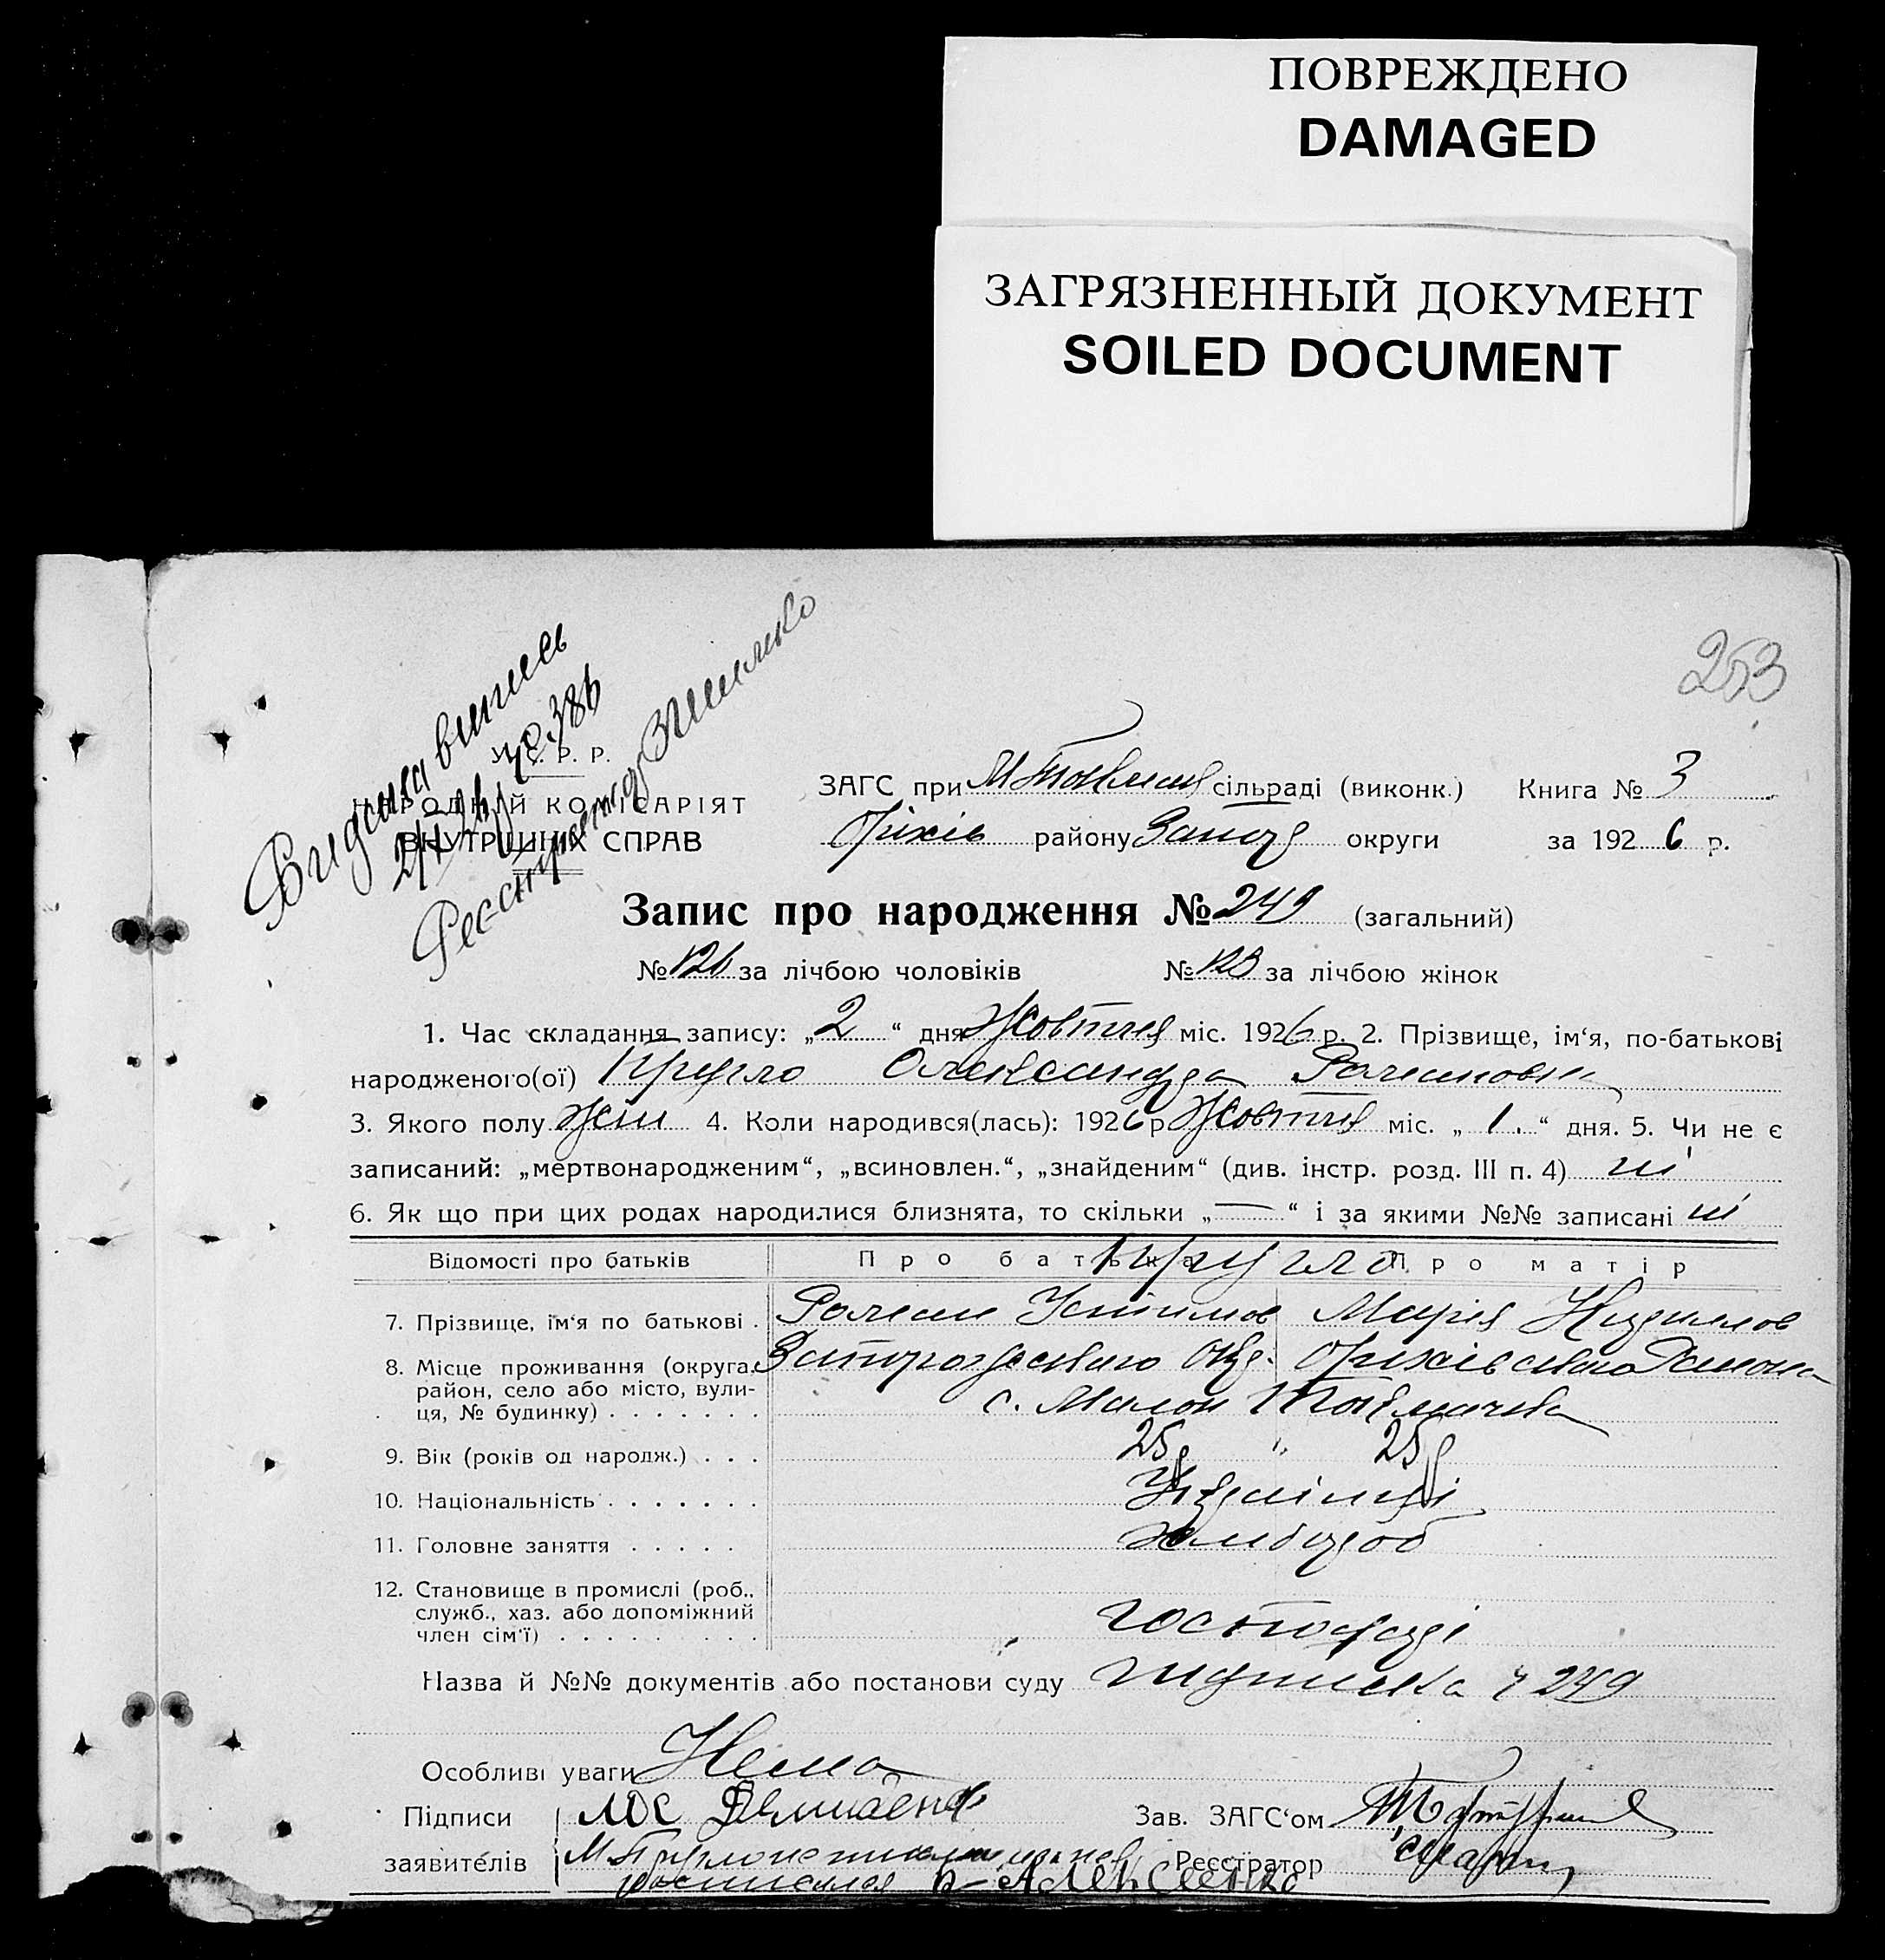 ПОВРЕЖДЕНО
DAMAGED
ЗАГРЯЗНЕННЫЙ ДОКУМЕНТ
SOILED DOCUMENT
253
Видана випись
У. С. Р. Р.
НАРОДНІЙ КОМІСАРІЯТ
ВНУТРІШНІХ СПРАВ
ЗАГС при М Токмац сільраді (виконк.) Книга № 3
Оріхів району Запор округи за 1926 р.
Запис про народження № 249 (загальний)
№ 126 за лічбою чоловіків № 123 за лічбою жінок
1. Час складання запису: „2“ дня Жовтня міс. 1926 р. 2. Прізвище, ім‘я, по-батькові
народженого(ої) Кругло Олександра Романовна
3. Якого полу жін 4. Коли народився(лась): 1926 р Жовтня міс. „1.“ дня. 5. Чи не є
записаний: „мертвонародженим“, „всиновлен.“, „знайденим“ (див. інстр. розд. III п. 4) ні
6. Як що при цих родах народилися близнята, то скільки „—“ і за якими №№ записані ні
Відомості про батьків Про батька Про матір
Кругло
7. Прізвище, ім‘я по батькові . Роман Устимов Марія
8. Місце проживання (округа, Запорожського Окр. Оріхівського Района
район, село або місто, вули-
ця, № будинку) . . . . . . . с. Малой Токмачка
9. Вік (років од народж.) . . . 25 р " 25 р
10. Національність . . . . . . . Українці
11. Головне заняття . . . . . хлібороб
12. Становище в промислі (роб.,
служб., хаз. або допоміжний
член сім‘ї) . . . . . . . . . господарі
Назва й №№ документів або постанови суду підписка ч 249
Особливі уваги Нема
Підписи Зав. ЗАГС‘ом
заявителів Реєстратор